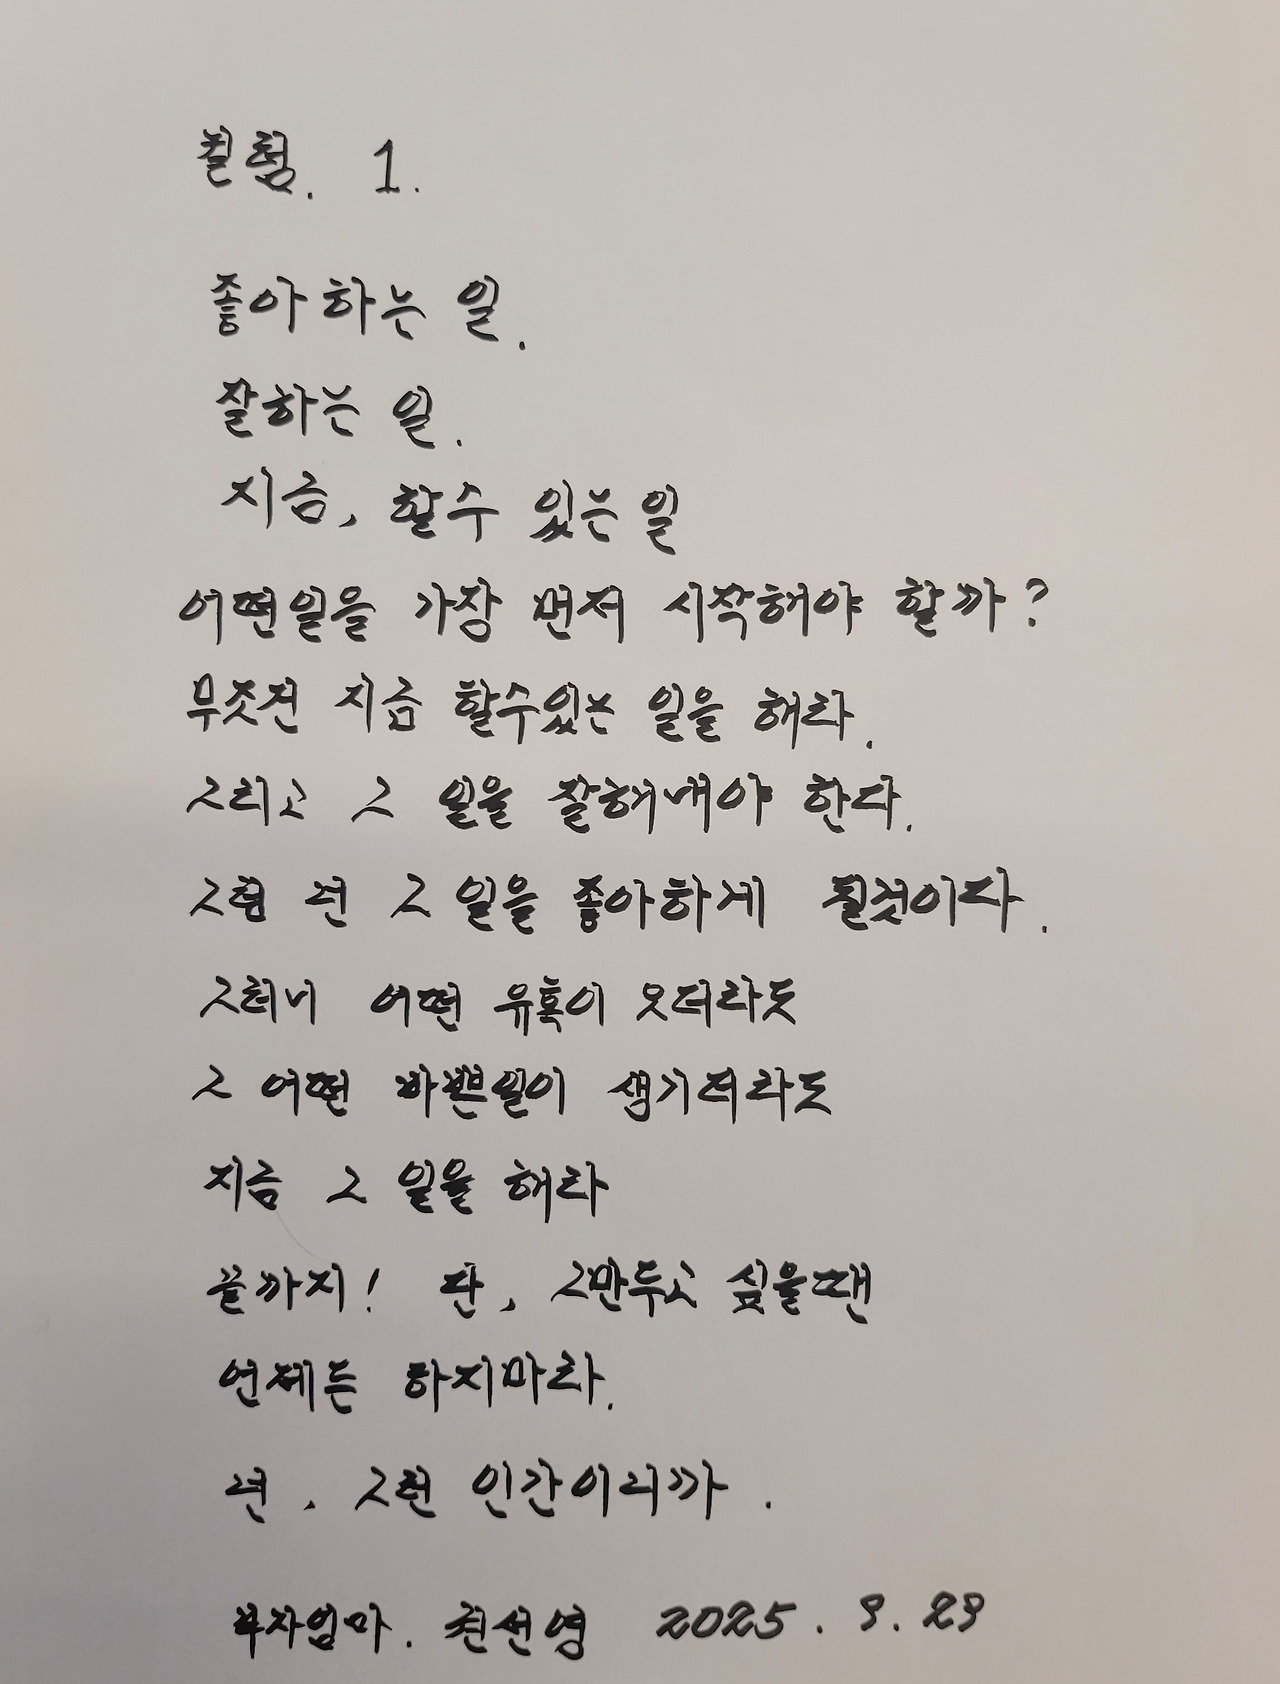 1.
좋아하는 일.
잘하는 일.
지금, 할수 있는 일
어떤일을 가장 먼저 시작해야 할까?
무조건 지금 할수있는 일을 해라.
그리고 그 일을 잘해내야 한다.
그럼 넌 그 일을 좋아하게 될것이다.
그러니 어떤 유혹이 오더라도
그 어떤 바쁜일이 생기더라도
지금 그 일을 해라
끝까지! 단, 그만두고 싶을땐
언제든 하지마라.
넌, 그런 인간이니까.
부자엄마. 2025. 9. 29